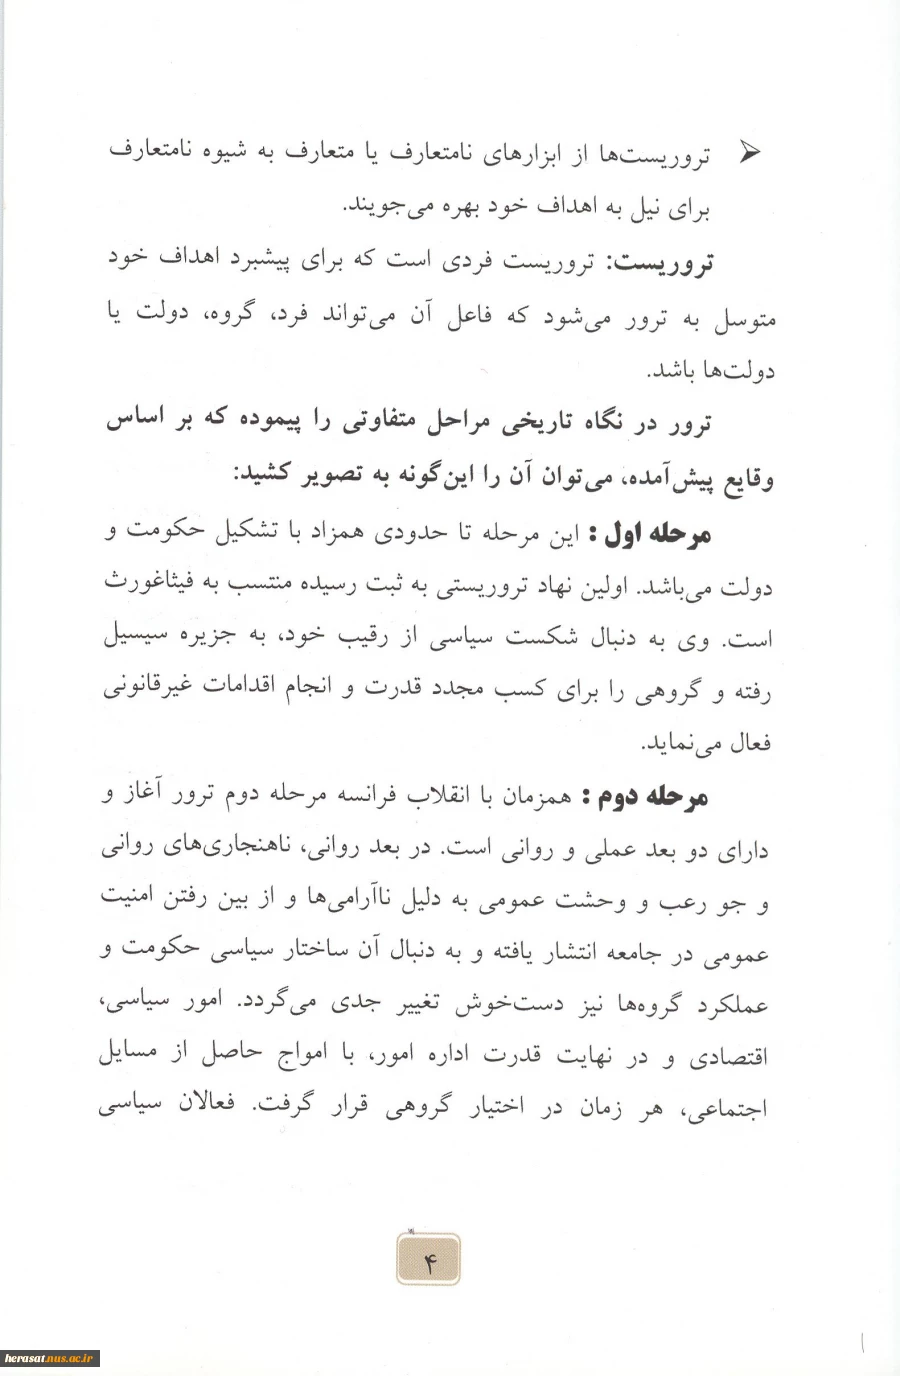 ➢ تروریست‌ها از ابزارهای نامتعارف یا متعارف به شیوه نامتعارف
برای نیل به اهداف خود بهره می‌جویند.
تروریست: تروریست فردی است که برای پیشبرد اهداف خود
متوسل به ترور می‌شود که فاعل آن می‌تواند فرد، گروه، دولت یا
دولت‌ها باشد.
ترور در نگاه تاریخی مراحل متفاوتی را پیموده که بر اساس
وقایع پیش‌آمده، می‌توان آن را این‌گونه به تصویر کشید:
مرحله اول : این مرحله تا حدودی همزاد با تشکیل حکومت و
دولت می‌باشد. اولین نهاد تروریستی به ثبت رسیده منتسب به فیثاغورث
است. وی به دنبال شکست سیاسی از رقیب خود، به جزیره سیسیل
رفته و گروهی را برای کسب مجدد قدرت و انجام اقدامات غیرقانونی
فعال می‌نماید.
مرحله دوم : همزمان با انقلاب فرانسه مرحله دوم ترور آغاز و
دارای دو بعد عملی و روانی است. در بعد روانی، ناهنجاری‌های روانی
و جو رعب و وحشت عمومی به دلیل ناآرامی‌ها و از بین رفتن امنیت
عمومی در جامعه انتشار یافته و به دنبال آن ساختار سیاسی حکومت و
عملکرد گروه‌ها نیز دست‌خوش تغییر جدی می‌گردد. امور سیاسی،
اقتصادی و در نهایت قدرت اداره امور، با امواج حاصل از مسایل
اجتماعی، هر زمان در اختیار گروهی قرار گرفت. فعالان سیاسی
۴
herasat.nus.ac.ir